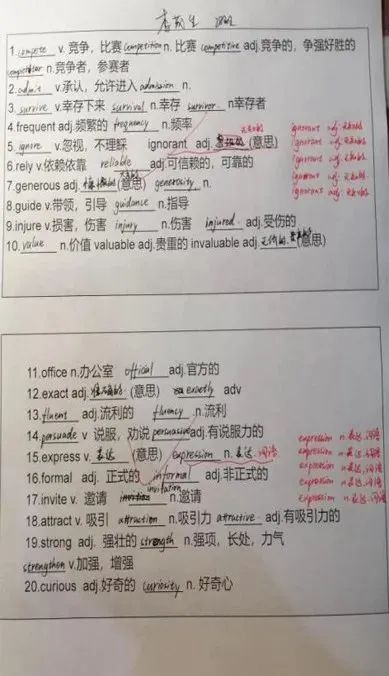 1. compete v. 竞争，比赛 competition n. 比赛 competitive adj.竞争的，争强好胜的
competitor n.竞争者，参赛者
2. admit v.承认，允许进入 admission n.
3. survive v.幸存下来 survival n.幸存 survivor n.幸存者
4.frequent adj.频繁的 frequency n.频率
5. ignore v.忽视，不理睬 ignorant adj. (意思) 无知的 ignorant adj. 无知的
ignorant adj. 无知的
6.rely v.依赖依靠 reliable adj.可信赖的，可靠的 ignorant adj. 无知的
7.generous adj. 慷慨的 (意思) generosity n. 大方的 ignorant adj. 无知的
ignorant adj. 无知的
8.guide v.带领，引导 guidance n.指导
9.injure v.损害，伤害 injury n.伤害 injured adj.受伤的
10. value n.价值 valuable adj.贵重的 invaluable adj. 无价的 (意思)
11.office n.办公室 official adj.官方的
12.exact adj. 准确的 (意思) exactly adv
13. fluent adj.流利的 fluency n.流利
14. persuade v 说服，劝说 persuasive adj.有说服力的
15.express v. 表达 (意思) expression n. 表达.词语 expression n.表达.词语
expression n.表达.词语
16.formal adj. 正式的 informal adj.非正式的 expression n.表达.词语
expression n.表达.词语
expression n.表达.词语
17.invite v. 邀请 invitation n.邀请
18.attract v.吸引 attraction n.吸引力 attractive adj.有吸引力的
19.strong adj. 强壮的 strength n.强项，长处，力气
strengthen v.加强，增强
20.curious adj.好奇的 curiosity n. 好奇心